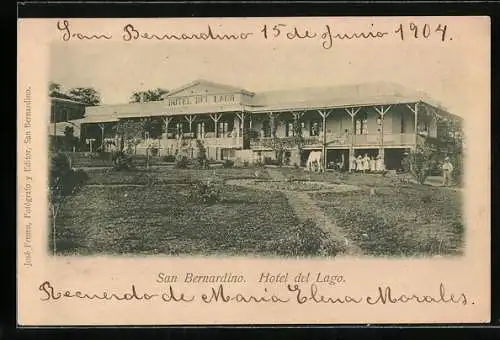 San Bernardino 15 de Junio 1904.
HOTEL DEL LAGO
José Fresen, Fotógrafo y Editor, San Bernardino.
San Bernardino. Hotel del Lago.
Recuerdo de María Elena Morales.